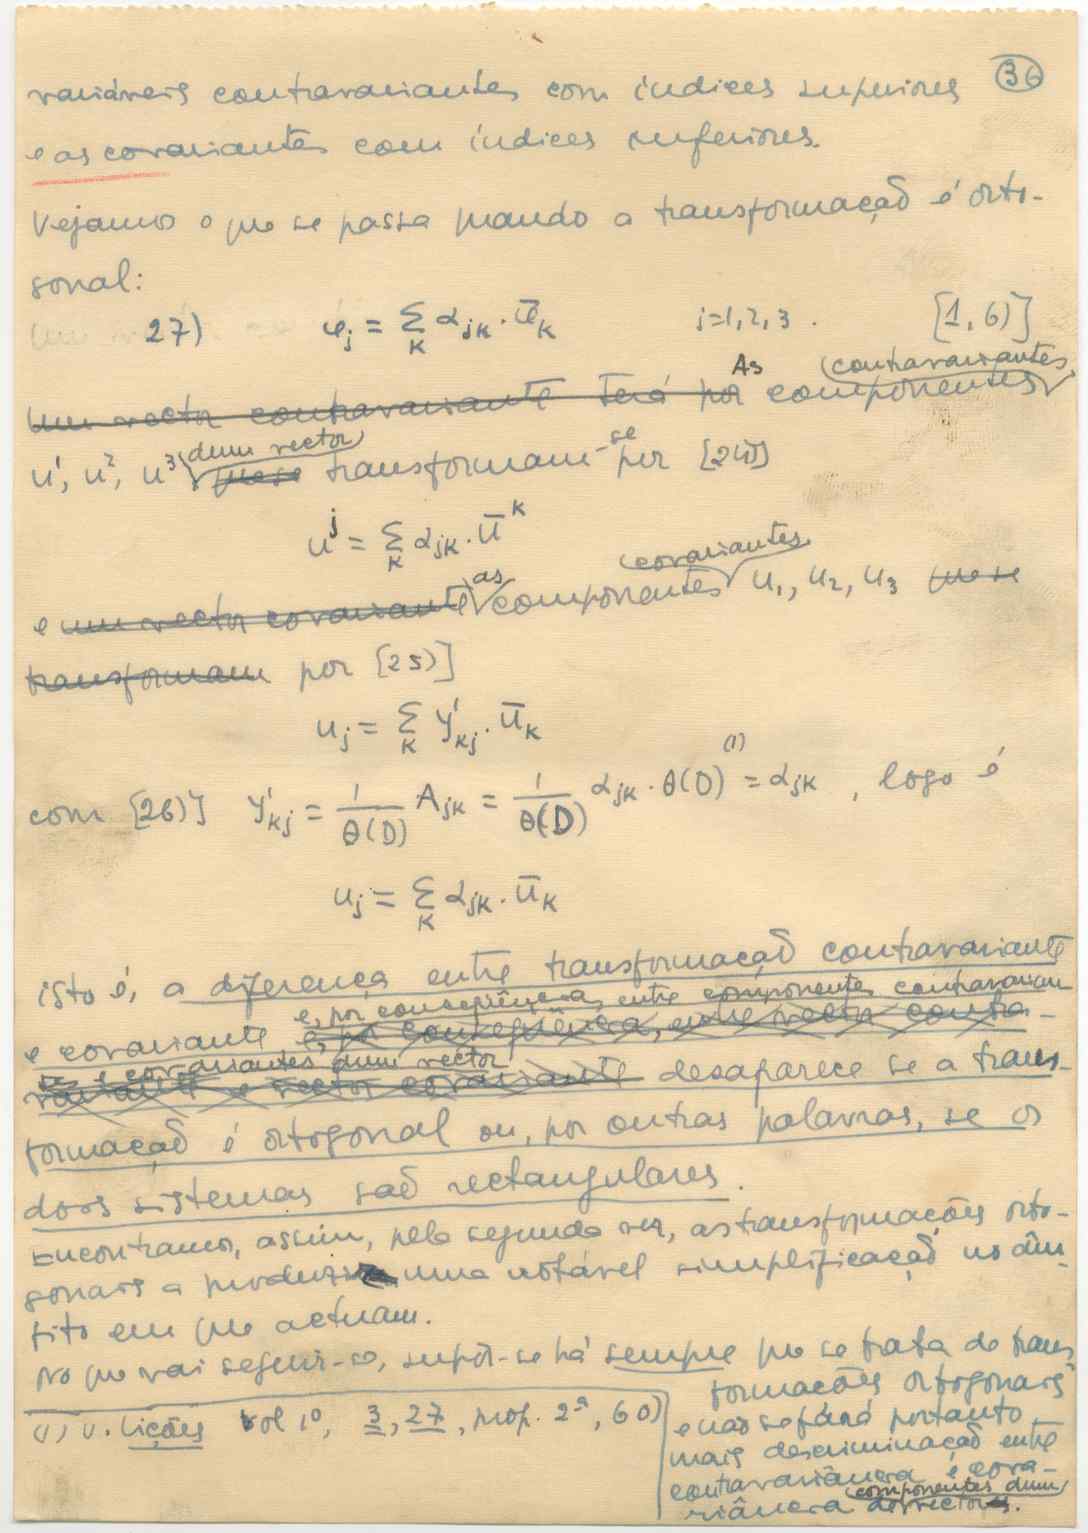 36
variáveis contravariantes com índices superiores
e as covariantes com índices inferiores.
Vejamos o que se passa quando a transformação é orto-
gonal:
27) φj = Σ_K αjK · φ̄K j=1,2,3 . [1,6)]
Um vector contravariante terá por As componentes (contravariantes)
u¹, u², u³ (dum vector) que se transformam-se por [24)]
u^j = Σ_K αjK · ū^K
e um vector covariante as componentes (covariantes) u₁, u₂, u₃ que se
transformam por [25)]
uj = Σ_K γ'Kj · ūK
com [26)] γ'Kj = 1/θ(D) AjK = 1/θ(D) αjK · θ(D) (1) = αjK , logo é
uj = Σ_K αjK · ūK
isto é, a diferença entre transformação contravariante
e, por consequência, entre componentes contravarian
e covariante, e, por consequência, entre vector contra-
tes e covariantes dum vector
variante e vector covariante desaparece se a trans-
formação é ortogonal ou, por outras palavras, se os
dois sistemas são rectangulares.
Encontramos, assim, pela segunda vez, as transformações orto-
gonais a produzir uma notável simplificação no âm-
bito em que actuam.
No que vai seguir-se, supôr-se há sempre que se trata de trans-
formações ortogonais
e não se fará portanto
mais descriminação entre
contravariância e cova-
riância (componentes dum)
de vectores.
(1) V. Lições vol 1º, 3, 27, prop. 2ª, 60)